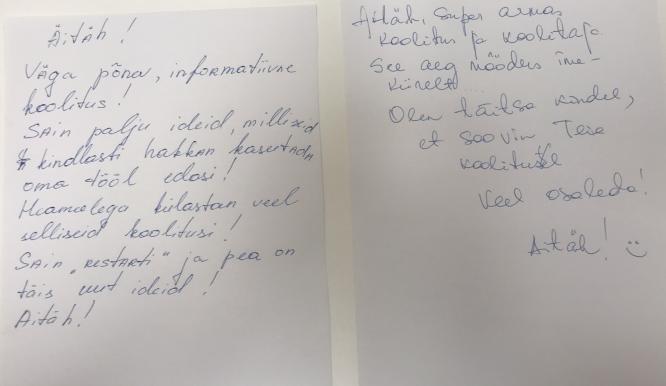 Äitäh!
Väga põnev, informatiivne
koolitus!
Sain palju ideid, millixid
kindlasti hakkan kasutada
oma tööl edasi!
Heameelega külastan veel
selliseid koolitusi!
Sain "restarti" ja pea on
täis uut ideid!
Aitäh!
Aitäh, super armas
koolitus ja koolitaja
See aeg möödus ime-
kiirelt....
Olen täitsa kindel,
et soovin Teie
koolitusel
veel osaleda!
Aitäh! ☺